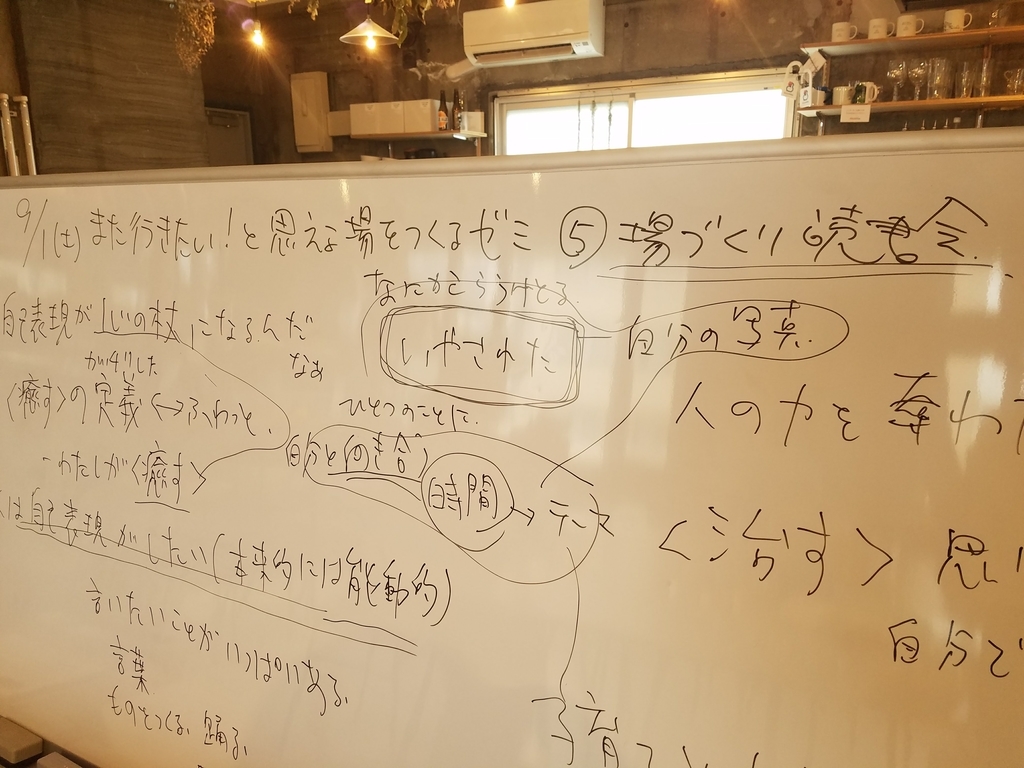 9/1(土) また行きたい!と思える場をつくるゼミ ⑤ 場づくり読書会.
自己表現が心の杖になるんだなぁ
なにかをうけとる.
いやされた
自分の写真.
がりがりした
〈癒す〉の定義 ↔ ふわっと、
- わたしが〈癒す〉
ひとつのことに.
自分と向き合う
時間 → テーマ
人の力を奪わ
〈治す〉思い
自分で
は自己表現がしたい(本来的には能動的)
言いたいことがいっぱいある。
言葉
ものをつくる。踊る。
子育て